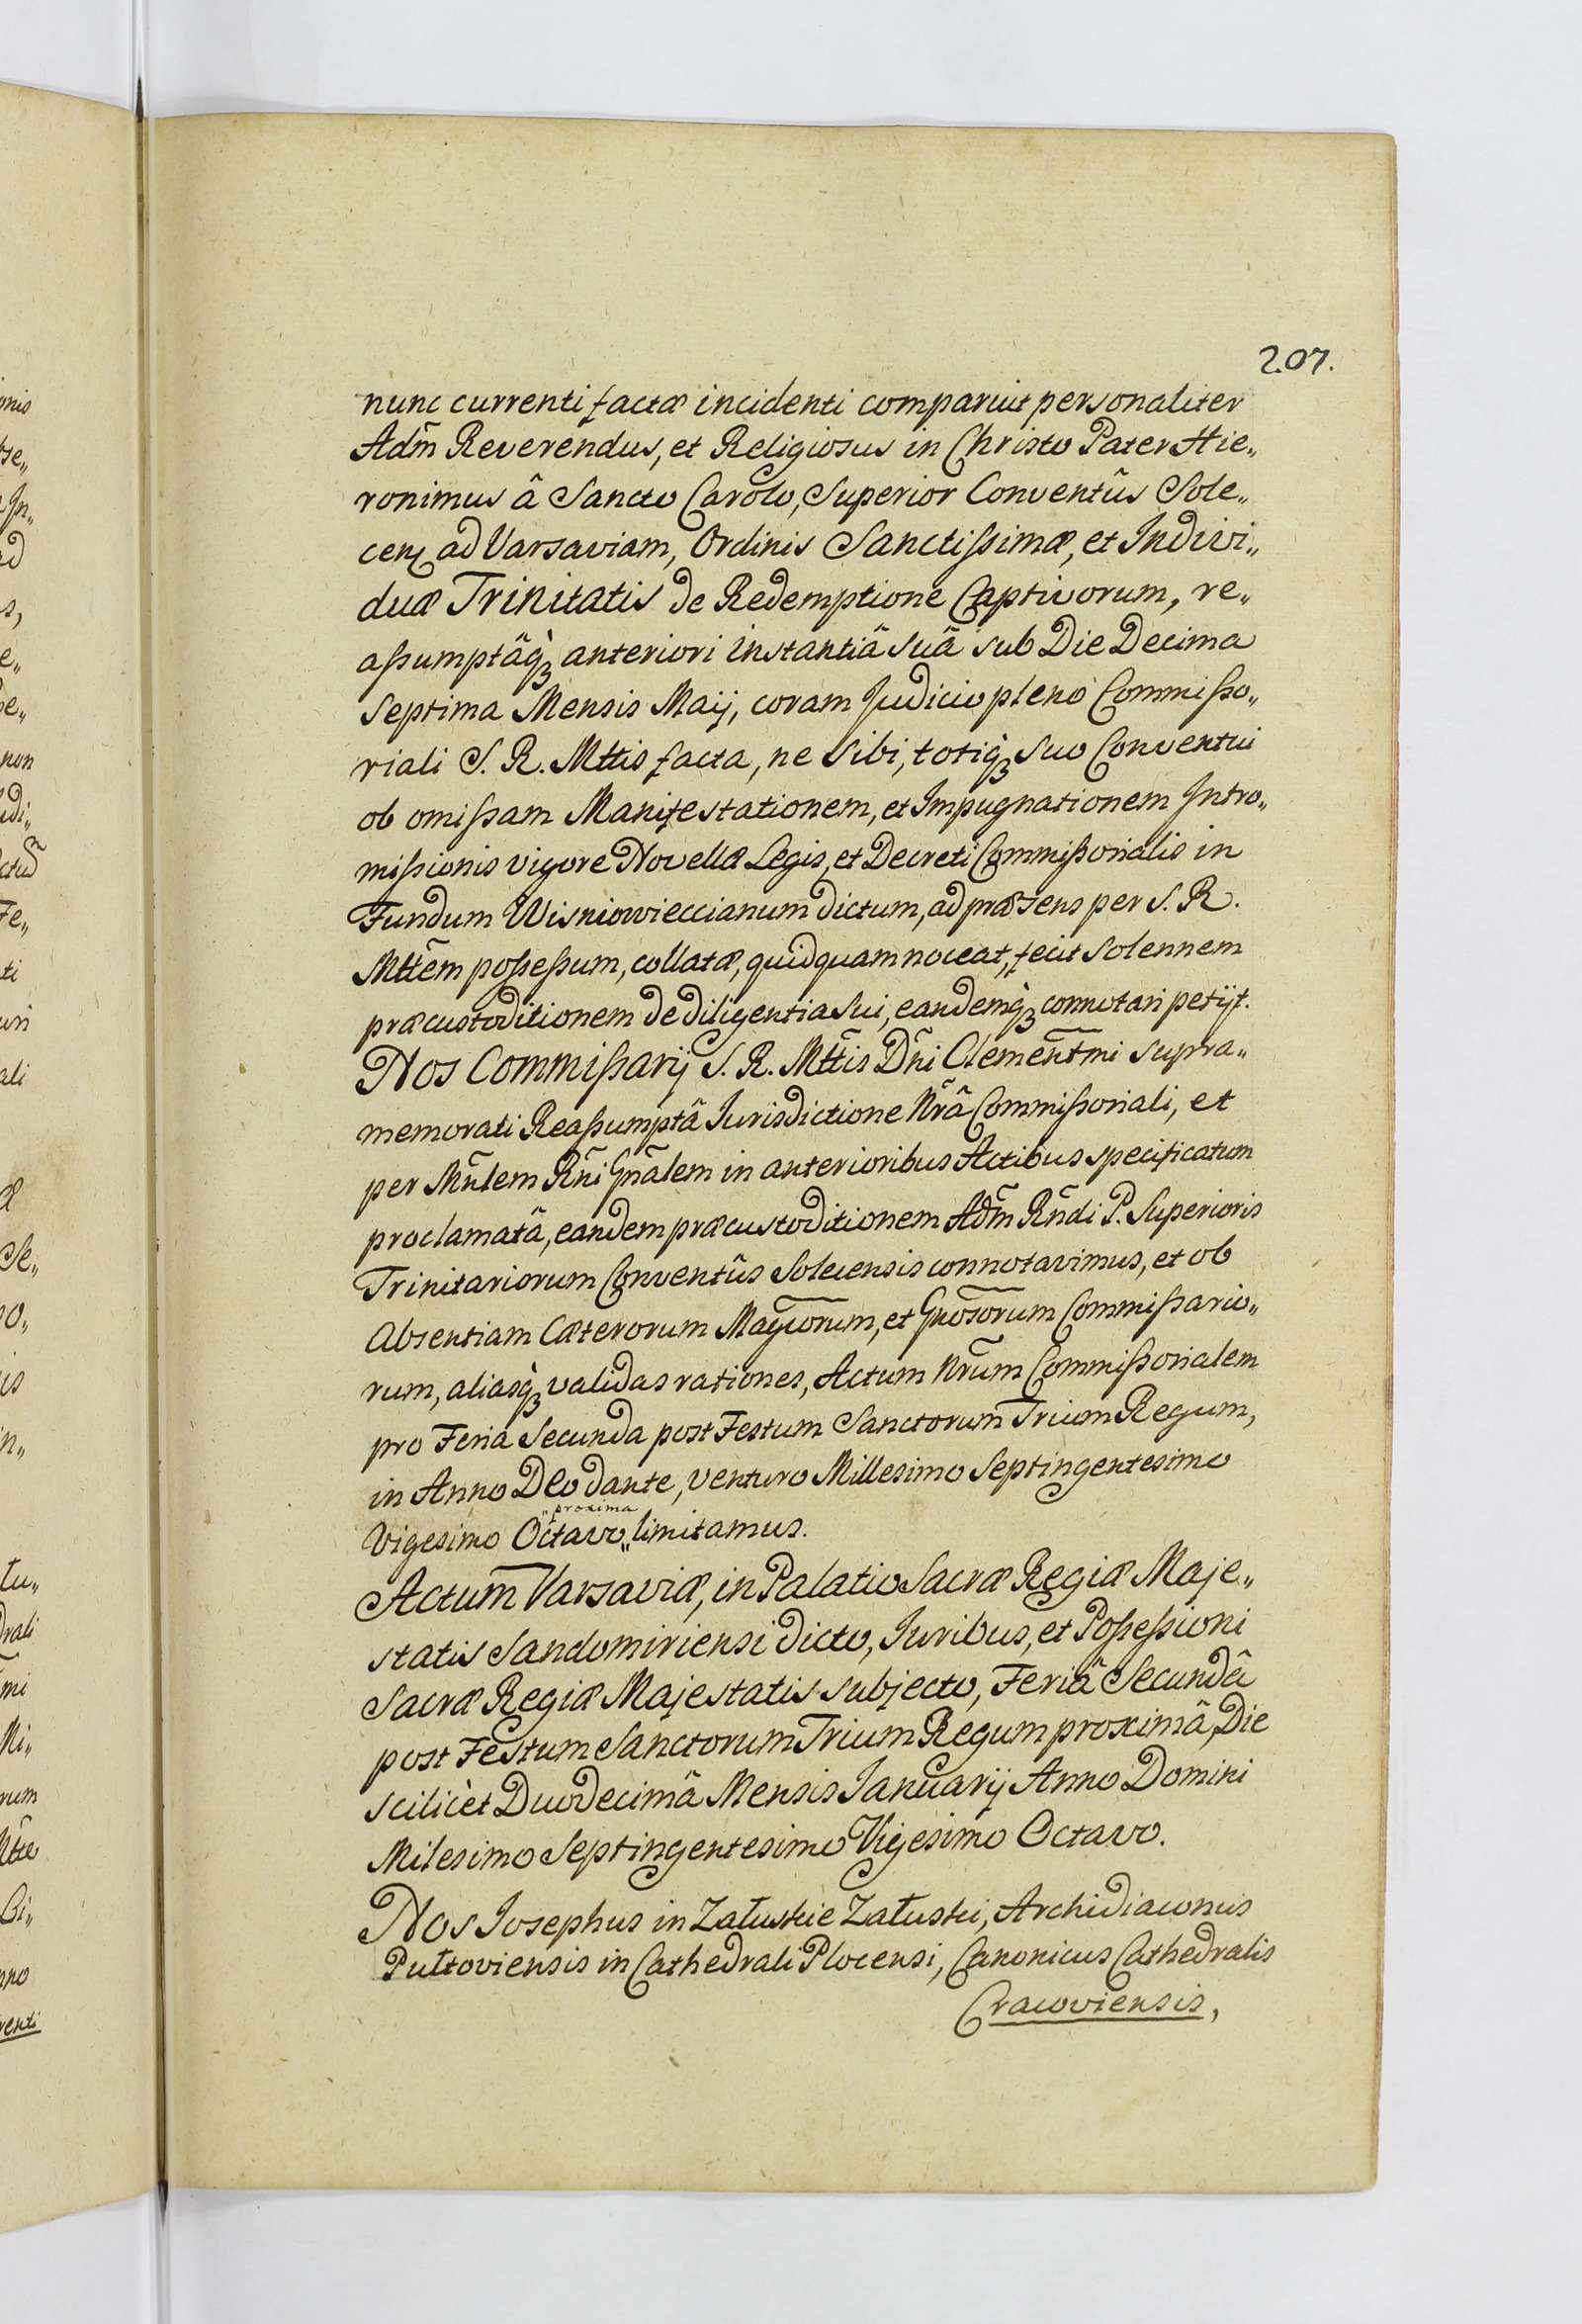 207.
nunc currenti factæ incidenti comparuit personaliter
Adm̃ Reverendus, et Religiosus in Christo Pater Hie„
ronimus â Sancto Carolo, Superior Conventûs Sole„
cen̄ ad Varsaviam, Ordinis Sanctißimæ, et Indivi„
duæ Trinitatis de Redemptione Captivorum, re„
aßumptâq̀ʒ anteriori instantiâ suâ sub Die Decima
Septima Mensis Maij, coram Judicio pleno Commißo„
riali S. R. Mttis facta, ne sibi, totiq̀ʒ suo Conventui
ob omißam Manifestationem, et Impugnationem Intro„
mißionis vigore Novellæ Legis, et Decreti Commißorialis in
Fundum Wisniowieccianum dictum, ad præsens per S. R.
Mttẽm poßeßum, collatæ, quidquam noceat, fecit solennem
præcustoditionem de diligentia sui, eandemq̀ʒ connotari petijt.
Nos Commißarij S. R. Mttĩs Dñi Clemeñtmi supra„
memorati Reaßumptâ Iurisdictione Nrã Commißoriali, et
per Mñlem Rñi Gnãlem in anterioribus Actibus specificatum
proclamatâ, eandem præcustoditionem Adm̃ Rñdi P. Superioris
Trinitariorum Conventûs Solecensis connotavimus, et ob
Absentiam Cæterorum Magcorum, et Gnosorum Commißario„
rum, aliasq̀ʒ validas rationes, Actum Nrũm Commißorialem
pro Feria Secunda post Festum Sanctorum Trium Regum,
in Anno DEO dante, venturo Millesimo Septingentesimo
„proxima
Vigesimo Octavo„ limitamus.
Actum Varsaviæ, in Palatio Sacræ Regiæ Maje„
statis Sandomiriensi dicto, Iuribus, et Poßeßioni
Sacræ Regiæ Majestatis subjecto, Feriâ Secundâ
post Festum Sanctorum Trium Regum proximâ, Die
scilicèt Duodecimâ Mensis Ianuarij Anno Domini
Milesimo Septingentesimo Vigesimo Octavo.
Nos Iosephus in Załuskie Załuski, Archidiaconus
Pułtoviensis in Cathedrali Plocensi, Canonicus Cathedralis
Cracoviensis,